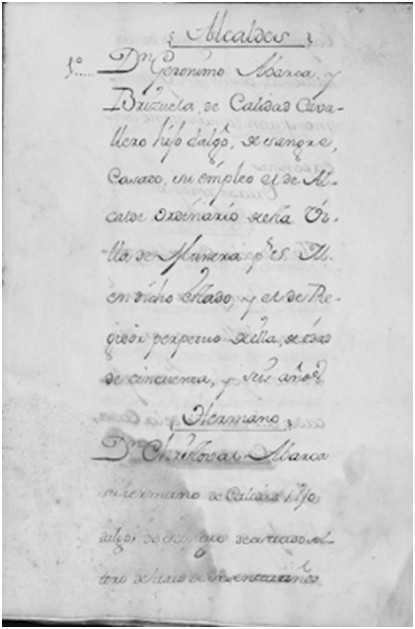 Alcaldes
1º..... Dn. Geronimo Abarca, y
Brizuela, de Calidad Cava-
llero hijo dalgo, de sangre,
Casado, su empleo el de Al-
calde Ordinario desta Vi-
lla de Munera pr. S. M.
en dicho estado y el de Re-
gidor perpetuo della, de edad
de cincuenta, y seis años
Hermano
Dn. Christoval Abarca
su hermano de Calidad hijo
dalgo, de sangre de estado sol-
tero de hedad de